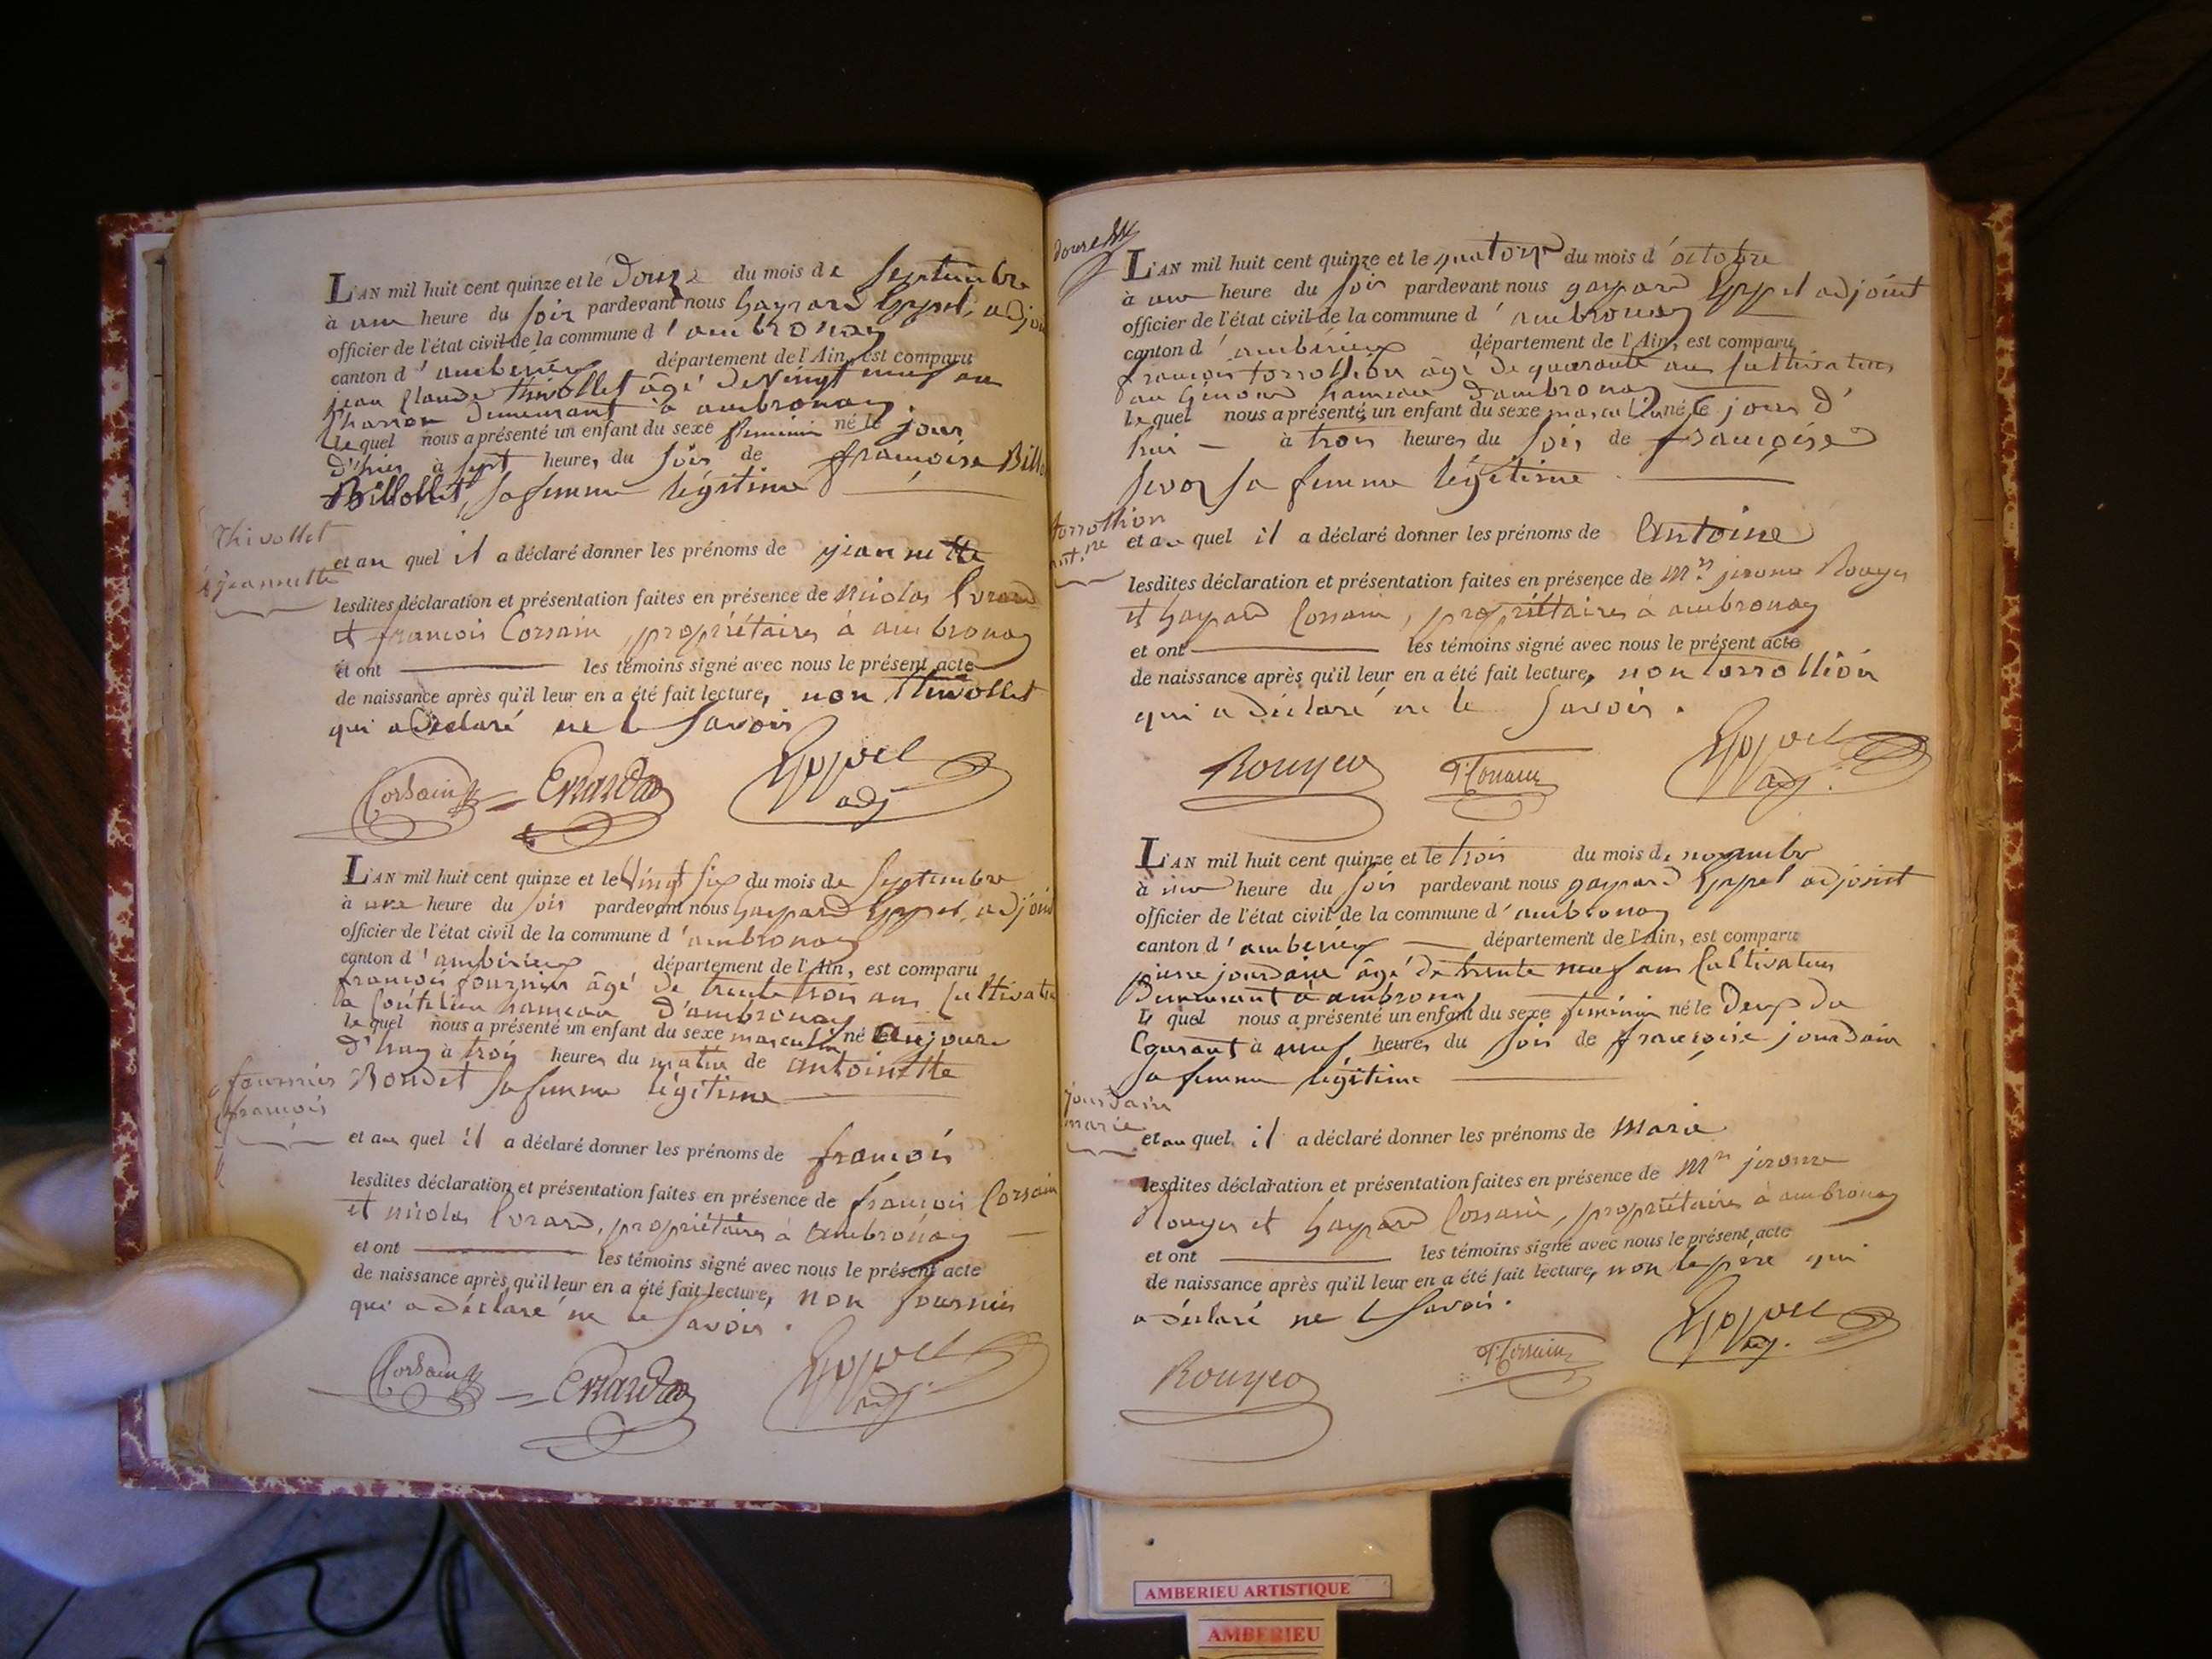 L'AN mil huit cent quinze et le Douze du mois de Septembre
à une heure du soir pardevant nous Gaspard Goyset, adjoi
officier de l'état civil de la commune d'ambronay
canton d'ambérieux département de l'Ain, est comparu
jean Claude thivollet âgé de Vingt neuf ans
Charron Demeurant à ambronay.
lequel nous a présenté un enfant du sexe feminin né le jour
d'hier à sept heures du soir de françoise Bill
Billollet sa femme légitime
Thivollet
jeannette
et au quel il a déclaré donner les prénoms de jeannette
lesdites déclaration et présentation faites en présence de Nicolas Evrard
et francois Corsain, propriétaires à ambronay
et ont les témoins signé avec nous le présent acte
de naissance après qu'il leur en a été fait lecture, non thivollet
qui a Déclaré ne le Savoir
Corsain Evrard adj
L'AN mil huit cent quinze et le Vingt six du mois de Septembre
à une heure du soir pardevant nous Gaspard adjoint
officier de l'état civil de la commune d'ambronay
canton d'ambérieux département de l'Ain, est comparu
françois fournier âgé de trente trois ans Cultivate
hameau d'ambronay
lequel nous a présenté un enfant du sexe masculin né Cejour
d'huy à trois heures du matin de antoinette
Bondet sa femme légitime
fournier
françois
et au quel il a déclaré donner les prénoms de françois
lesdites déclaration et présentation faites en présence de françois Corsain
et nicolas Evrard, propriétaires à ambronay
et ont les témoins signé avec nous le présent acte
de naissance après qu'il leur en a été fait lecture, non fournier
qui a déclaré ne le Savoir.
Corsain Evrard adj
L'AN mil huit cent quinze et le quatorze du mois d'octobre
à une heure du soir pardevant nous gaspard adjoint
officier de l'état civil de la commune d'ambronay
canton d'ambérieux département de l'Ain, est comparu
françois torrollion âgé de quarante ans Cultivateur
au hameau d'ambronay
lequel nous a présenté un enfant du sexe masculin né le jour d'
hui à trois heures du soir de françoise
sa femme légitime
torrollion
ant.ne
et au quel il a déclaré donner les prénoms de Antoine
lesdites déclaration et présentation faites en présence de Mrs jerome Rouyer
et Gaspard Corsain, propriétaires à ambronay
et ont les témoins signé avec nous le présent acte
de naissance après qu'il leur en a été fait lecture, non torrollion
qui a déclaré ne le Savoir.
Rouyer G Corsain adj.
L'AN mil huit cent quinze et le trois du mois de novembre
à une heure du soir pardevant nous gaspard adjoint
officier de l'état civil de la commune d'ambronay
canton d'ambérieux département de l'Ain, est comparu
pierre jourdain âgé de trente neuf ans Cultivateur
Demeurant à ambronay
le quel nous a présenté un enfant du sexe feminin né le Deux du
Courant à neuf heures du soir de françoise jourdain
sa femme légitime
jourdain
marie
et au quel il a déclaré donner les prénoms de Marie
lesdites déclaration et présentation faites en présence de Mrs jerome
Rouyer et Gaspard Corsain, propriétaires à ambronay
et ont les témoins signé avec nous le présent acte
de naissance après qu'il leur en a été fait lecture, non le père qui
a déclaré ne le Savoir.
Rouyer G Corsain adj.
AMBERIEU ARTISTIQUE
AMBERIEU